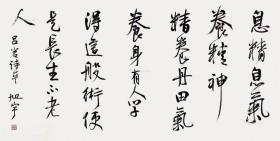 息精息氣
養精神
精養丹田氣
養身有人學
得這般術便
是長生不老
人
呂岩詩
旭宇